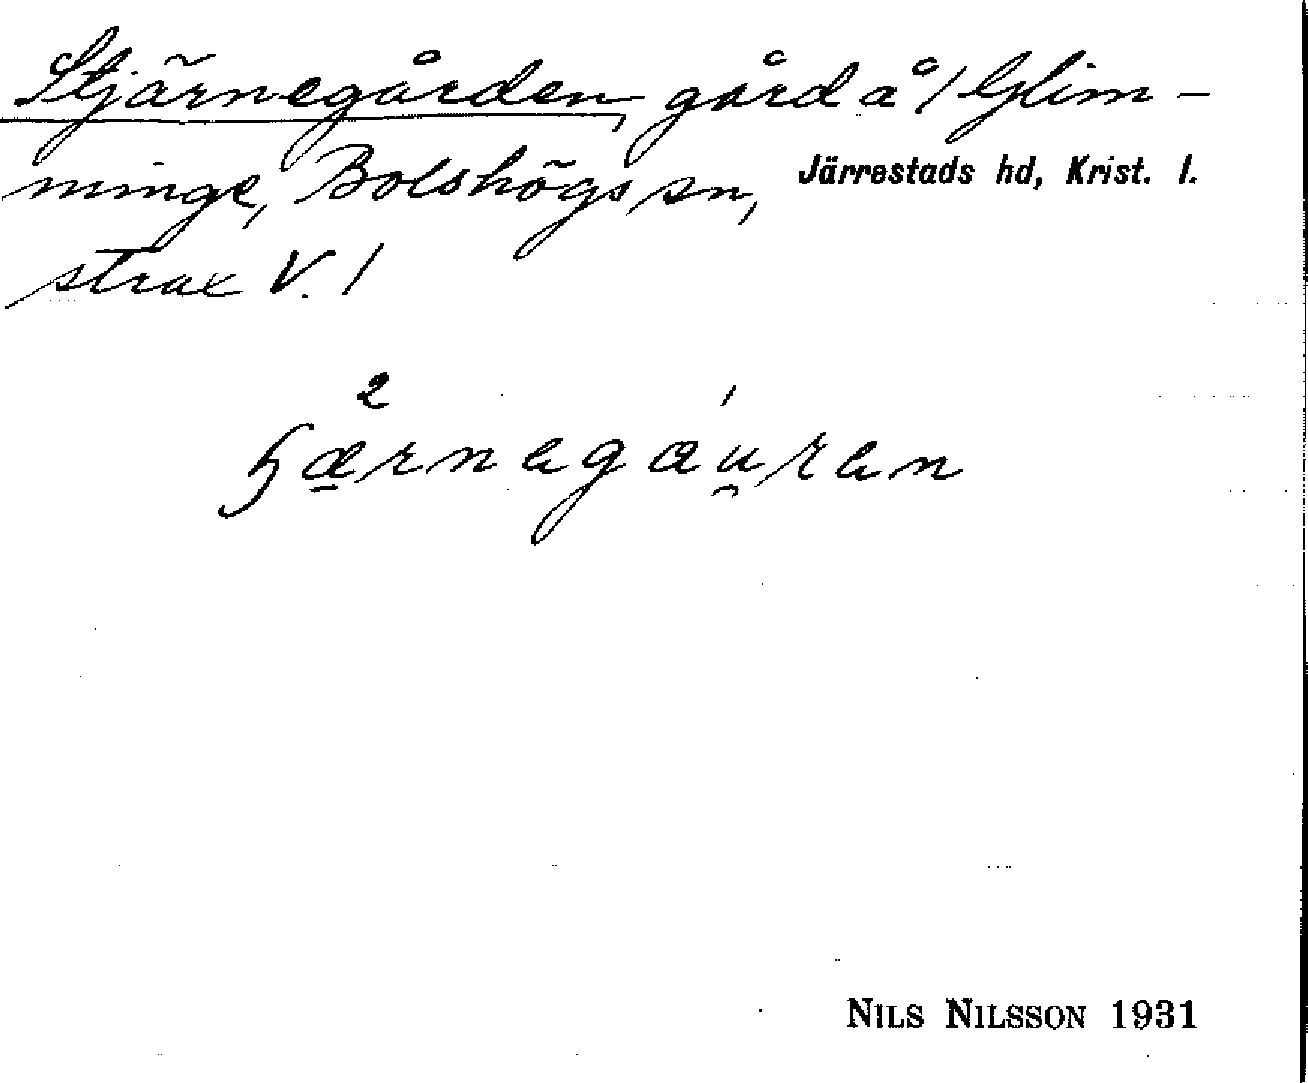 Stjärnegården, gård å / Glim-
minge, Bolshögs sn, Järrestads hd, Krist. l.
strax V. /
NILS NILSSON 1931